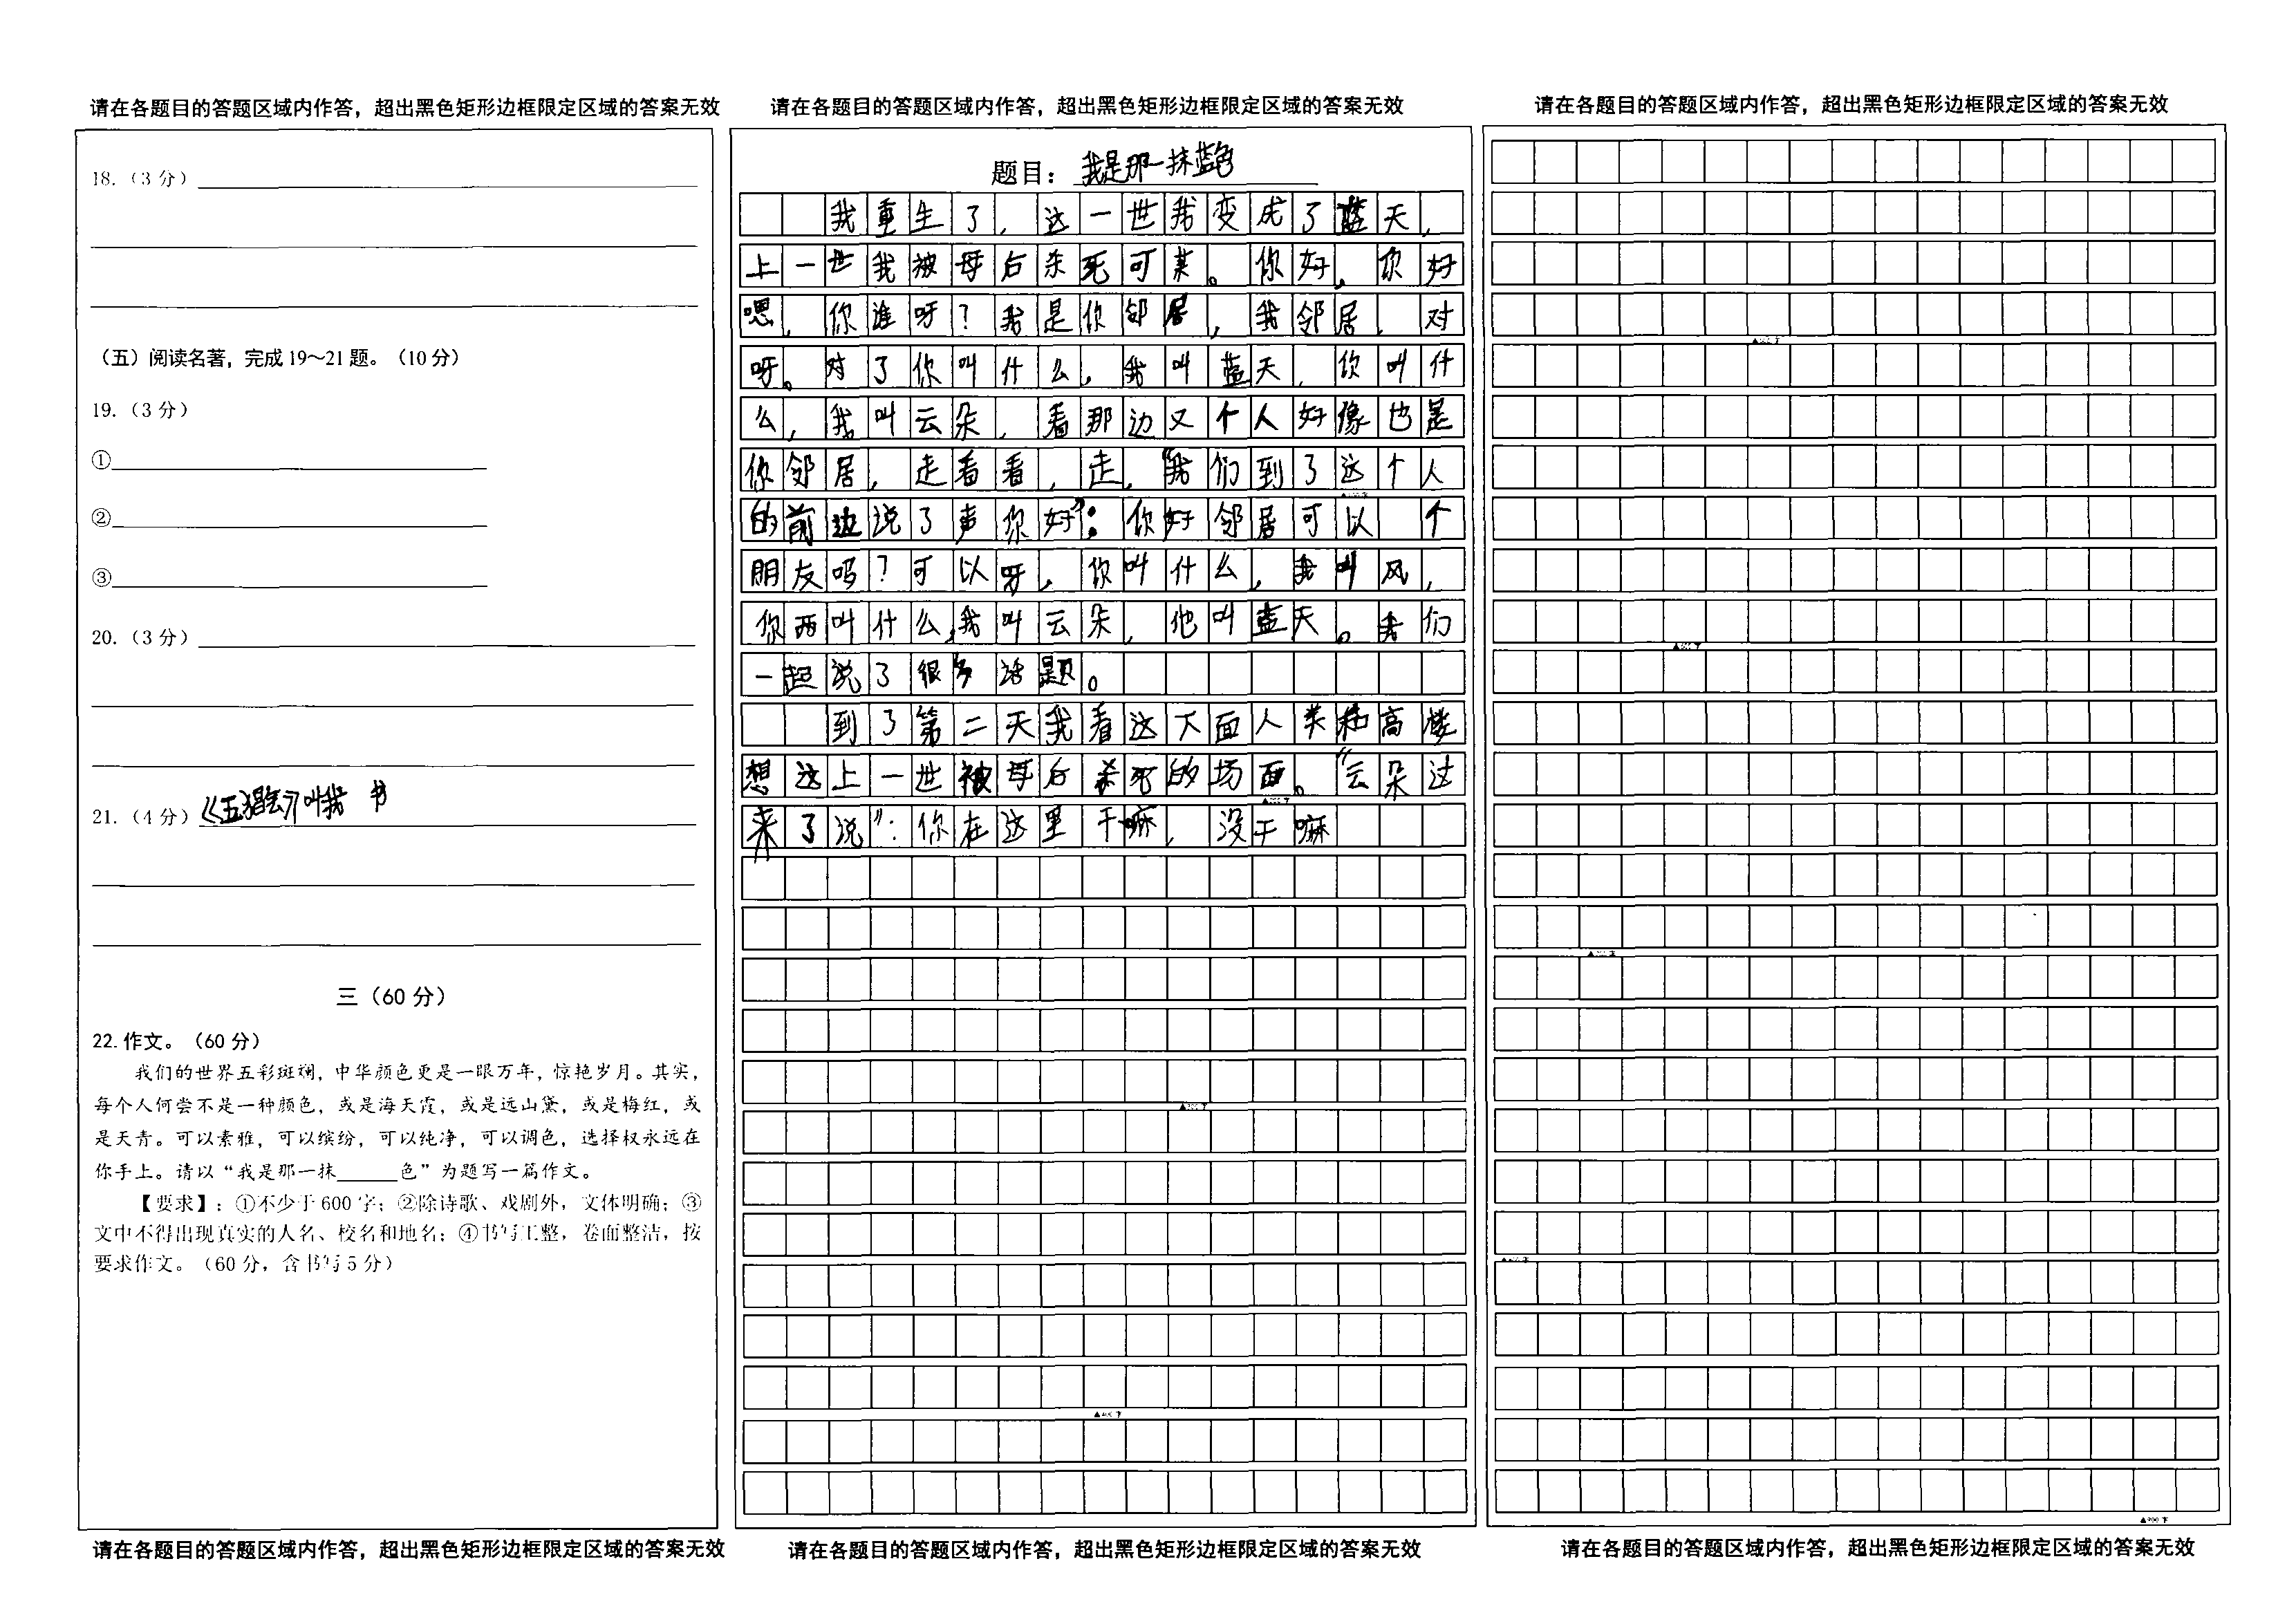 请在各题目的答题区域内作答，超出黑色矩形边框限定区域的答案无效
18.（3 分）
（五）阅读名著，完成 19～21 题。（10 分）
19.（3 分）
①
②
③
20.（3 分）
21.（4 分）《五猖会》叫我 书
三（60 分）
22.作文。（60 分）
我们的世界五彩斑斓，中华颜色更是一眼万年，惊艳岁月。其实，
每个人何尝不是一种颜色，或是海天霞，或是远山黛，或是梅红，或
是天青。可以素雅，可以缤纷，可以纯净，可以调色，选择权永远在
你手上。请以“我是那一抹______色”为题写一篇作文。
【要求】：①不少于 600 字；②除诗歌、戏剧外，文体明确；③
文中不得出现真实的人名、校名和地名；④书写工整，卷面整洁，按
要求作文。（60 分，含书写 5 分）
请在各题目的答题区域内作答，超出黑色矩形边框限定区域的答案无效
请在各题目的答题区域内作答，超出黑色矩形边框限定区域的答案无效
题目：我是那一抹蓝色
我重生了，这一世我变成了蓝天，
上一世我被母后杀死可某。你好，你好
嗯，你谁呀？我是你邻居，我邻居，对
呀。对了你叫什么，我叫蓝天，你叫什
么，我叫云朵，看那边又个人好像也是
你邻居，走看看，走，“我们到了这个人
的前边说了声你好”：你好邻居可以 个
朋友吗？可以呀，你叫什么，我叫风，
你两叫什么，我叫云朵，他叫蓝天。我们
一起说了很多话题。
到了第二天我看这下面人类和高楼
想这上一世被母后杀死的场面。“云朵过
来了说”：你在这里干嘛，没干嘛
请在各题目的答题区域内作答，超出黑色矩形边框限定区域的答案无效
请在各题目的答题区域内作答，超出黑色矩形边框限定区域的答案无效
▲900 字
请在各题目的答题区域内作答，超出黑色矩形边框限定区域的答案无效